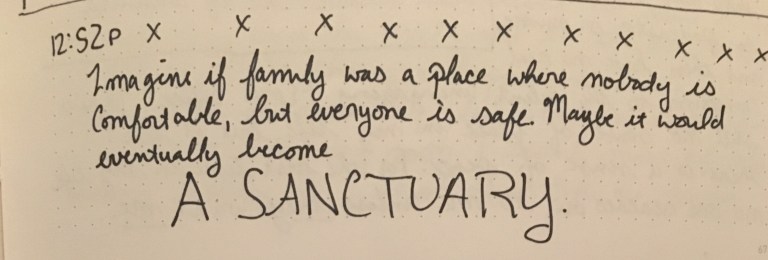 12:52p x x x x x x x x x x x
Imagine if family was a place where nobody is
Comfortable, but everyone is safe. Maybe it would
eventually become
A SANCTUARY.
67